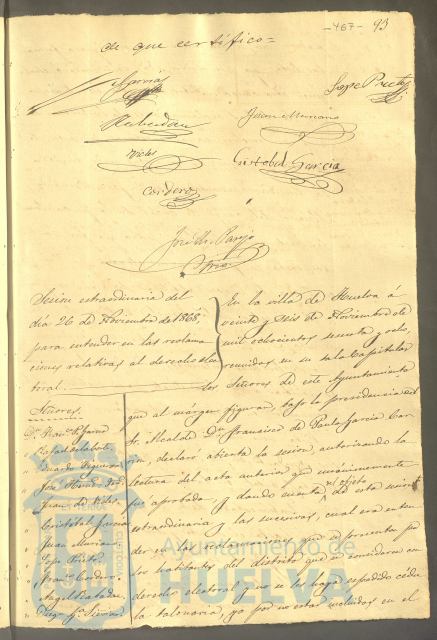 -467- 93
de que certifico=
Garcia
Lope Prieto
Rebollar
Juan Mariano
Vides
Cristobal Garcia
Cordero
José M. Parejo
Srio.
Sesion extraordinaria del
dia 26 de Noviembre de 1868,
para entender en las reclama
ciones relativas al derecho elec
toral.
En la villa de Huelva á
veinte y seis de Noviembre de
mil ochocientos sesenta y ocho,
reunidos en su sala Capitular
los Señores de este Ayuntamiento
que al márgen figuran, bajo la presidencia del
Sr. Alcalde Dn. Francisco de Paula Garcia
declaró abierta la sesion, autorizando la
lectura del acta anterior que unánimemente
fue aprobada y dando cuenta del objeto de esta sesion
extraordinaria y las sucesivas, cual era enten
der en las reclamaciones que se presenten por
los habitantes del distrito que se consideran con
derecho electoral y no se les haya espedido cédu
la talonaria, ya por no estar incluidos en el
Señores.
Dn. Franco. P. Garcia
" Rafael
" Eduardo Figueroa
" José
" Juan de Vides
" Cristobal Garcia
" Juan Mariano
" Lope Prieto
" Franco. Cordero
" Angel Rebollar
" Diego
Ayuntamiento de
HUELVA